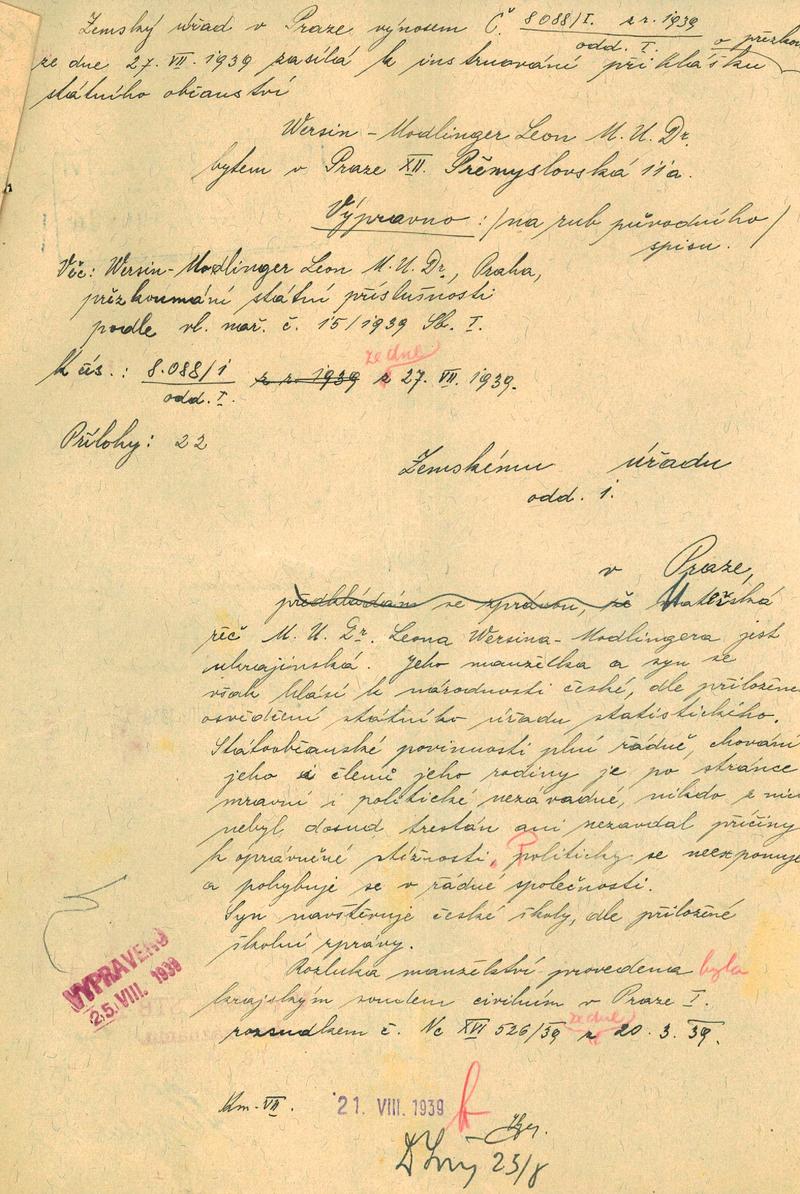 Zemský úřad v Praze výnosem Č. 8088/I. z r. 1939
odd. I.
ze dne 27. VII. 1939 zasílá k instruování přihlášku o přezkou
státního občanství
Wersin - Modlinger Leon M. U. Dr.
bytem v Praze XII. Přemyslovská 11a.
Výpravno: /na rub původního /
spisu.
Věc: Wersin-Modlinger Leon M. U. Dr., Praha,
přezkoumání státní příslušnosti
podle vl. nař. č. 15/1939 Sb. I.
ze dne
K čís.: 8.088/1 z r. 1939 z 27. VII. 1939.
odd. I.
Přílohy: 22
Zemskému úřadu
odd. 1.
v Praze,
předkládám se zprávou, že Mateřská
řeč M. U. Dr. Leona Wersina-Modlingera jest
ukrajinská. Jeho manželka a syn se
však hlásí k národnosti české, dle přiložené
osvědčení státního úřadu statistického.
Státoobčanské povinnosti plní řádně, chování
jeho i členů jeho rodiny je po stránce
mravní i politické nezávadné, nikdo z nich
nebyl dosud trestán ani nezavdal příčiny
k oprávněné stížnosti. Politicky se neexponuje
a pohybuje se v řádné společnosti.
Syn navštěvuje české školy, dle přiložené
školní zprávy.
Rozluka manželství provedena byla
krajským soudem civilním v Praze I.
ze dne
rozsudkem č. Nc XVI 526/39 z 20. 3. 39.
VYPRAVENO
25. VIII. 1939
Km-VII. 21. VIII. 1939
23/8